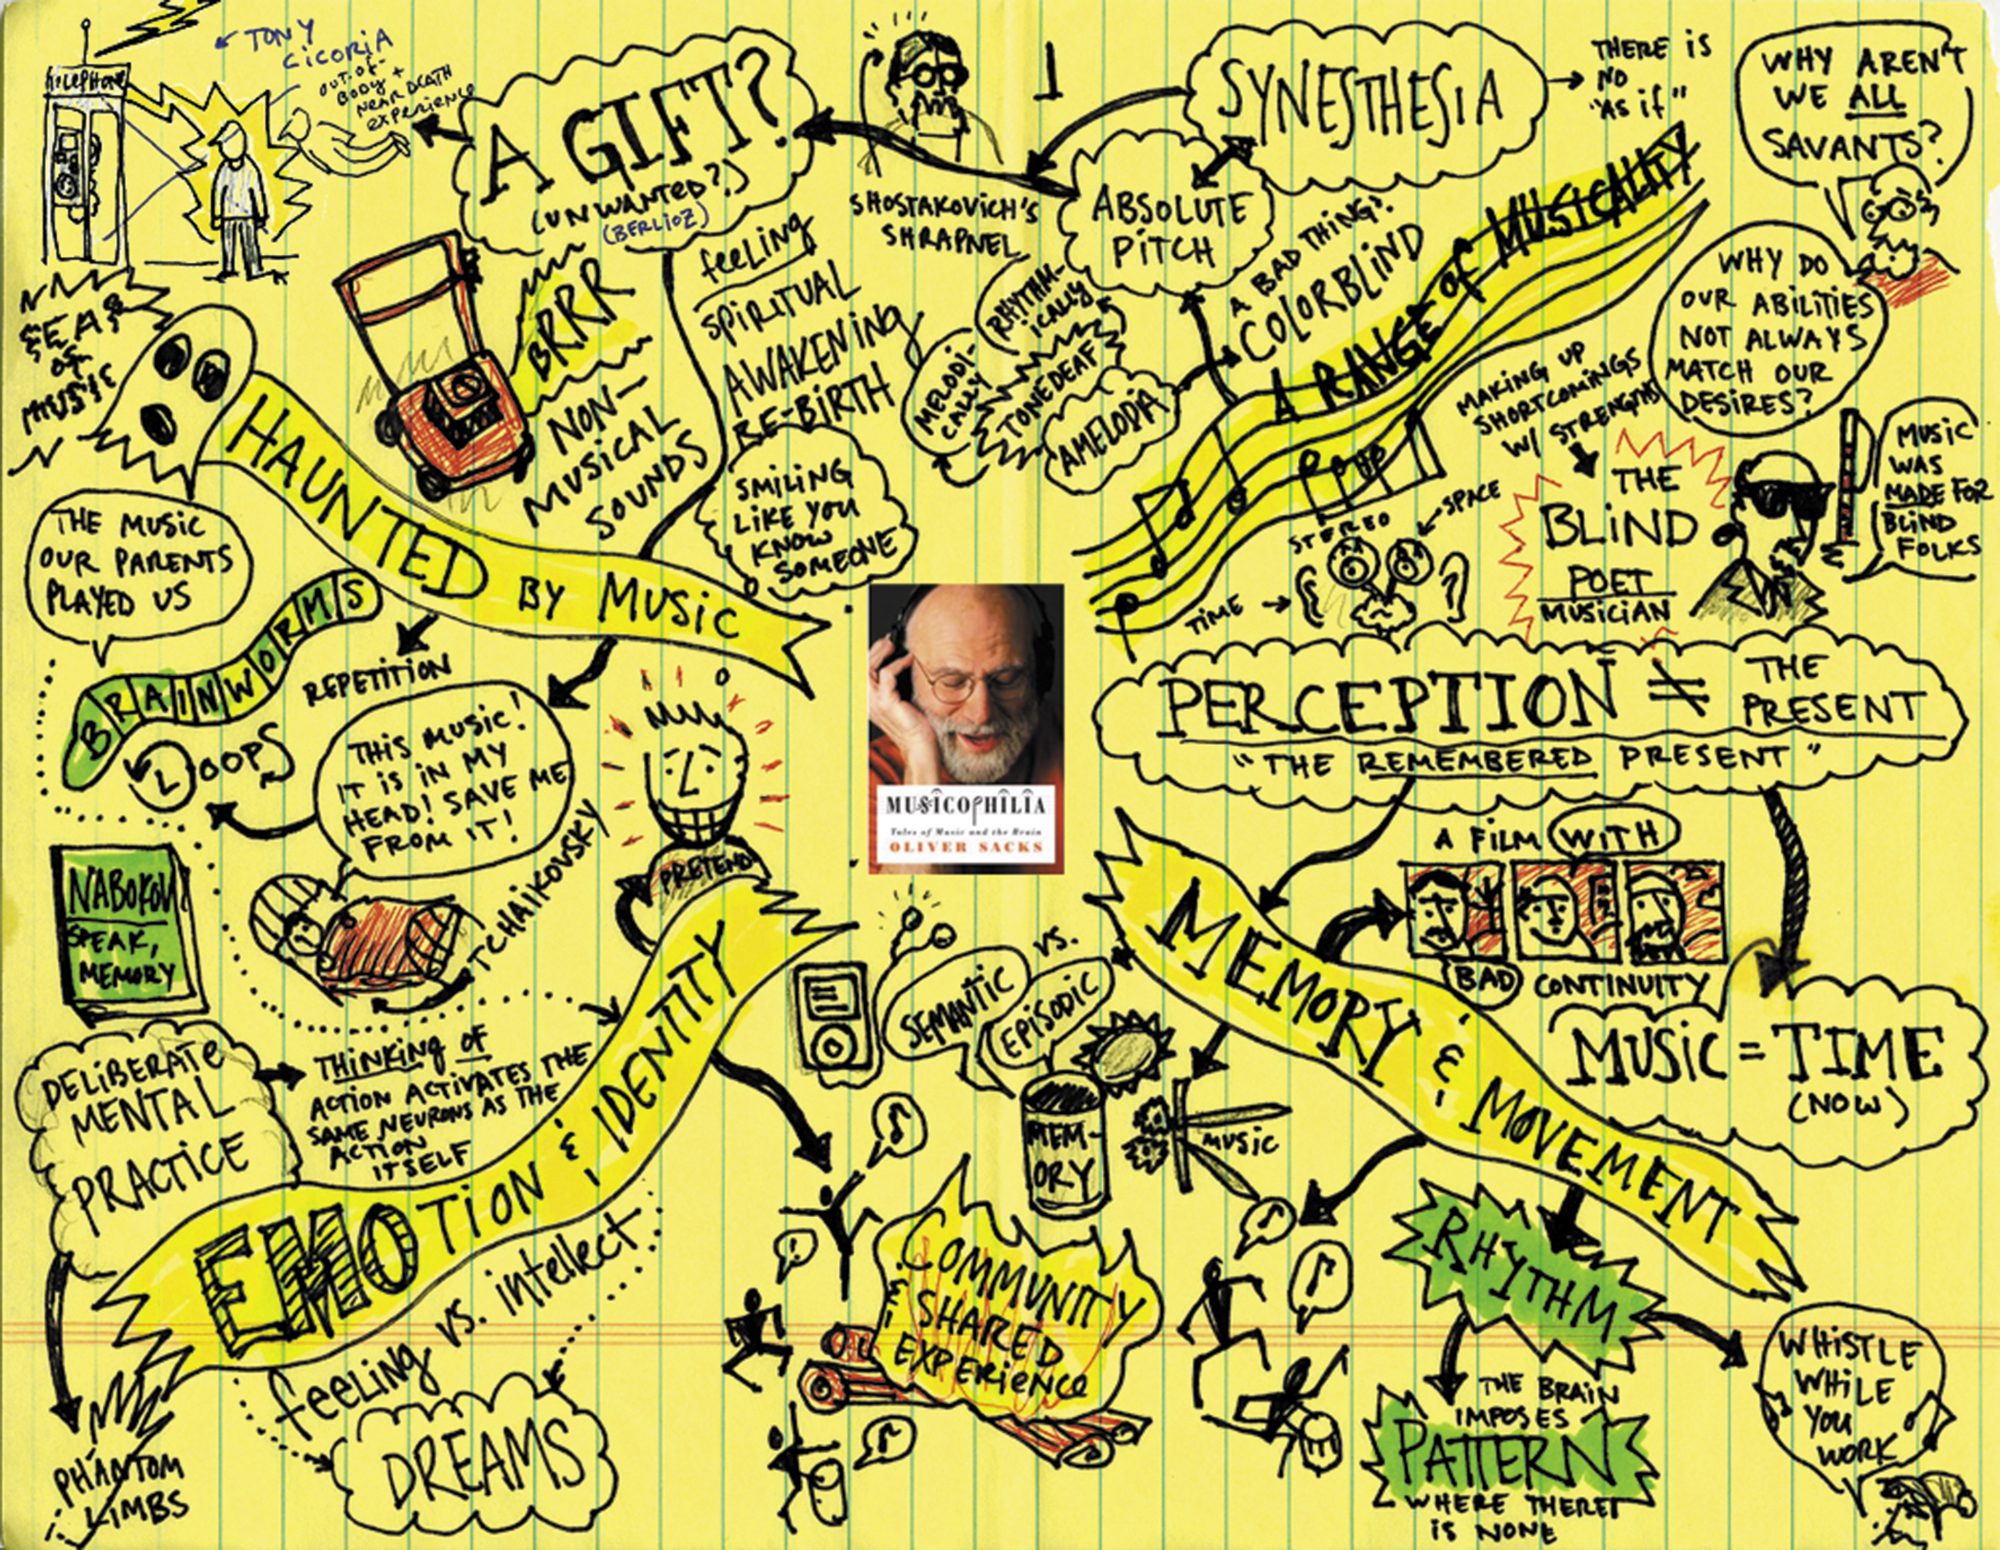 TELEPHONE
TONY
CICORIA
OUT-OF-
BODY +
NEAR DEATH
EXPERIENCE
A GIFT?
(UNWANTED?)
(BERLIOZ)
SHOSTAKOVICH'S
SHRAPNEL
SYNESTHESIA
THERE IS
NO
"AS IF"
ABSOLUTE
PITCH
WHY AREN'T
WE ALL
SAVANTS?
WHY DO
OUR ABILITIES
NOT ALWAYS
MATCH OUR
DESIRES?
FEAR
OF
MUSIC
HAUNTED BY MUSIC
BRRR
NON-
MUSICAL
SOUNDS
feeling
SPIRITUAL
AWAKENING
RE-BIRTH
SMILING
LIKE YOU
KNOW
SOMEONE
MELODI-
CALLY
RHYTHM-
ICALLY
TONEDEAF
AMELODIA
A BAD THING?
COLORBLIND
A RANGE of MUSICALITY
MAKING UP
SHORTCOMINGS
W/ STRENGTHS
THE
BLIND
POET
MUSICIAN
MUSIC
WAS
MADE FOR
BLIND
FOLKS
STEREO
SPACE
TIME
THE MUSIC
OUR PARENTS
PLAYED US
BRAINWORMS
REPETITION
LOOPS
THIS MUSIC!
IT IS IN MY
HEAD! SAVE ME
FROM IT!
TCHAIKOVSKY
PRETEND
MUSICOPHILIA
Tales of Music and the Brain
OLIVER SACKS
PERCEPTION ≠ THE PRESENT
"THE REMEMBERED PRESENT"
A FILM WITH
BAD CONTINUITY
MUSIC = TIME
(NOW)
MEMORY & MOVEMENT
NABOKOV
SPEAK,
MEMORY
DELIBERATE
MENTAL
PRACTICE
THINKING OF
ACTION ACTIVATES THE
SAME NEURONS AS THE
ACTION
ITSELF
EMOTION & IDENTITY
feeling vs. intellect
DREAMS
PHANTOM
LIMBS
SEMANTIC
vs.
EPISODIC
MEM-
ORY
MUSIC
COMMUNITY
& SHARED
EXPERIENCE
RHYTHM
THE BRAIN
IMPOSES
PATTERN
WHERE THERE
IS NONE
WHISTLE
WHILE
YOU
WORK